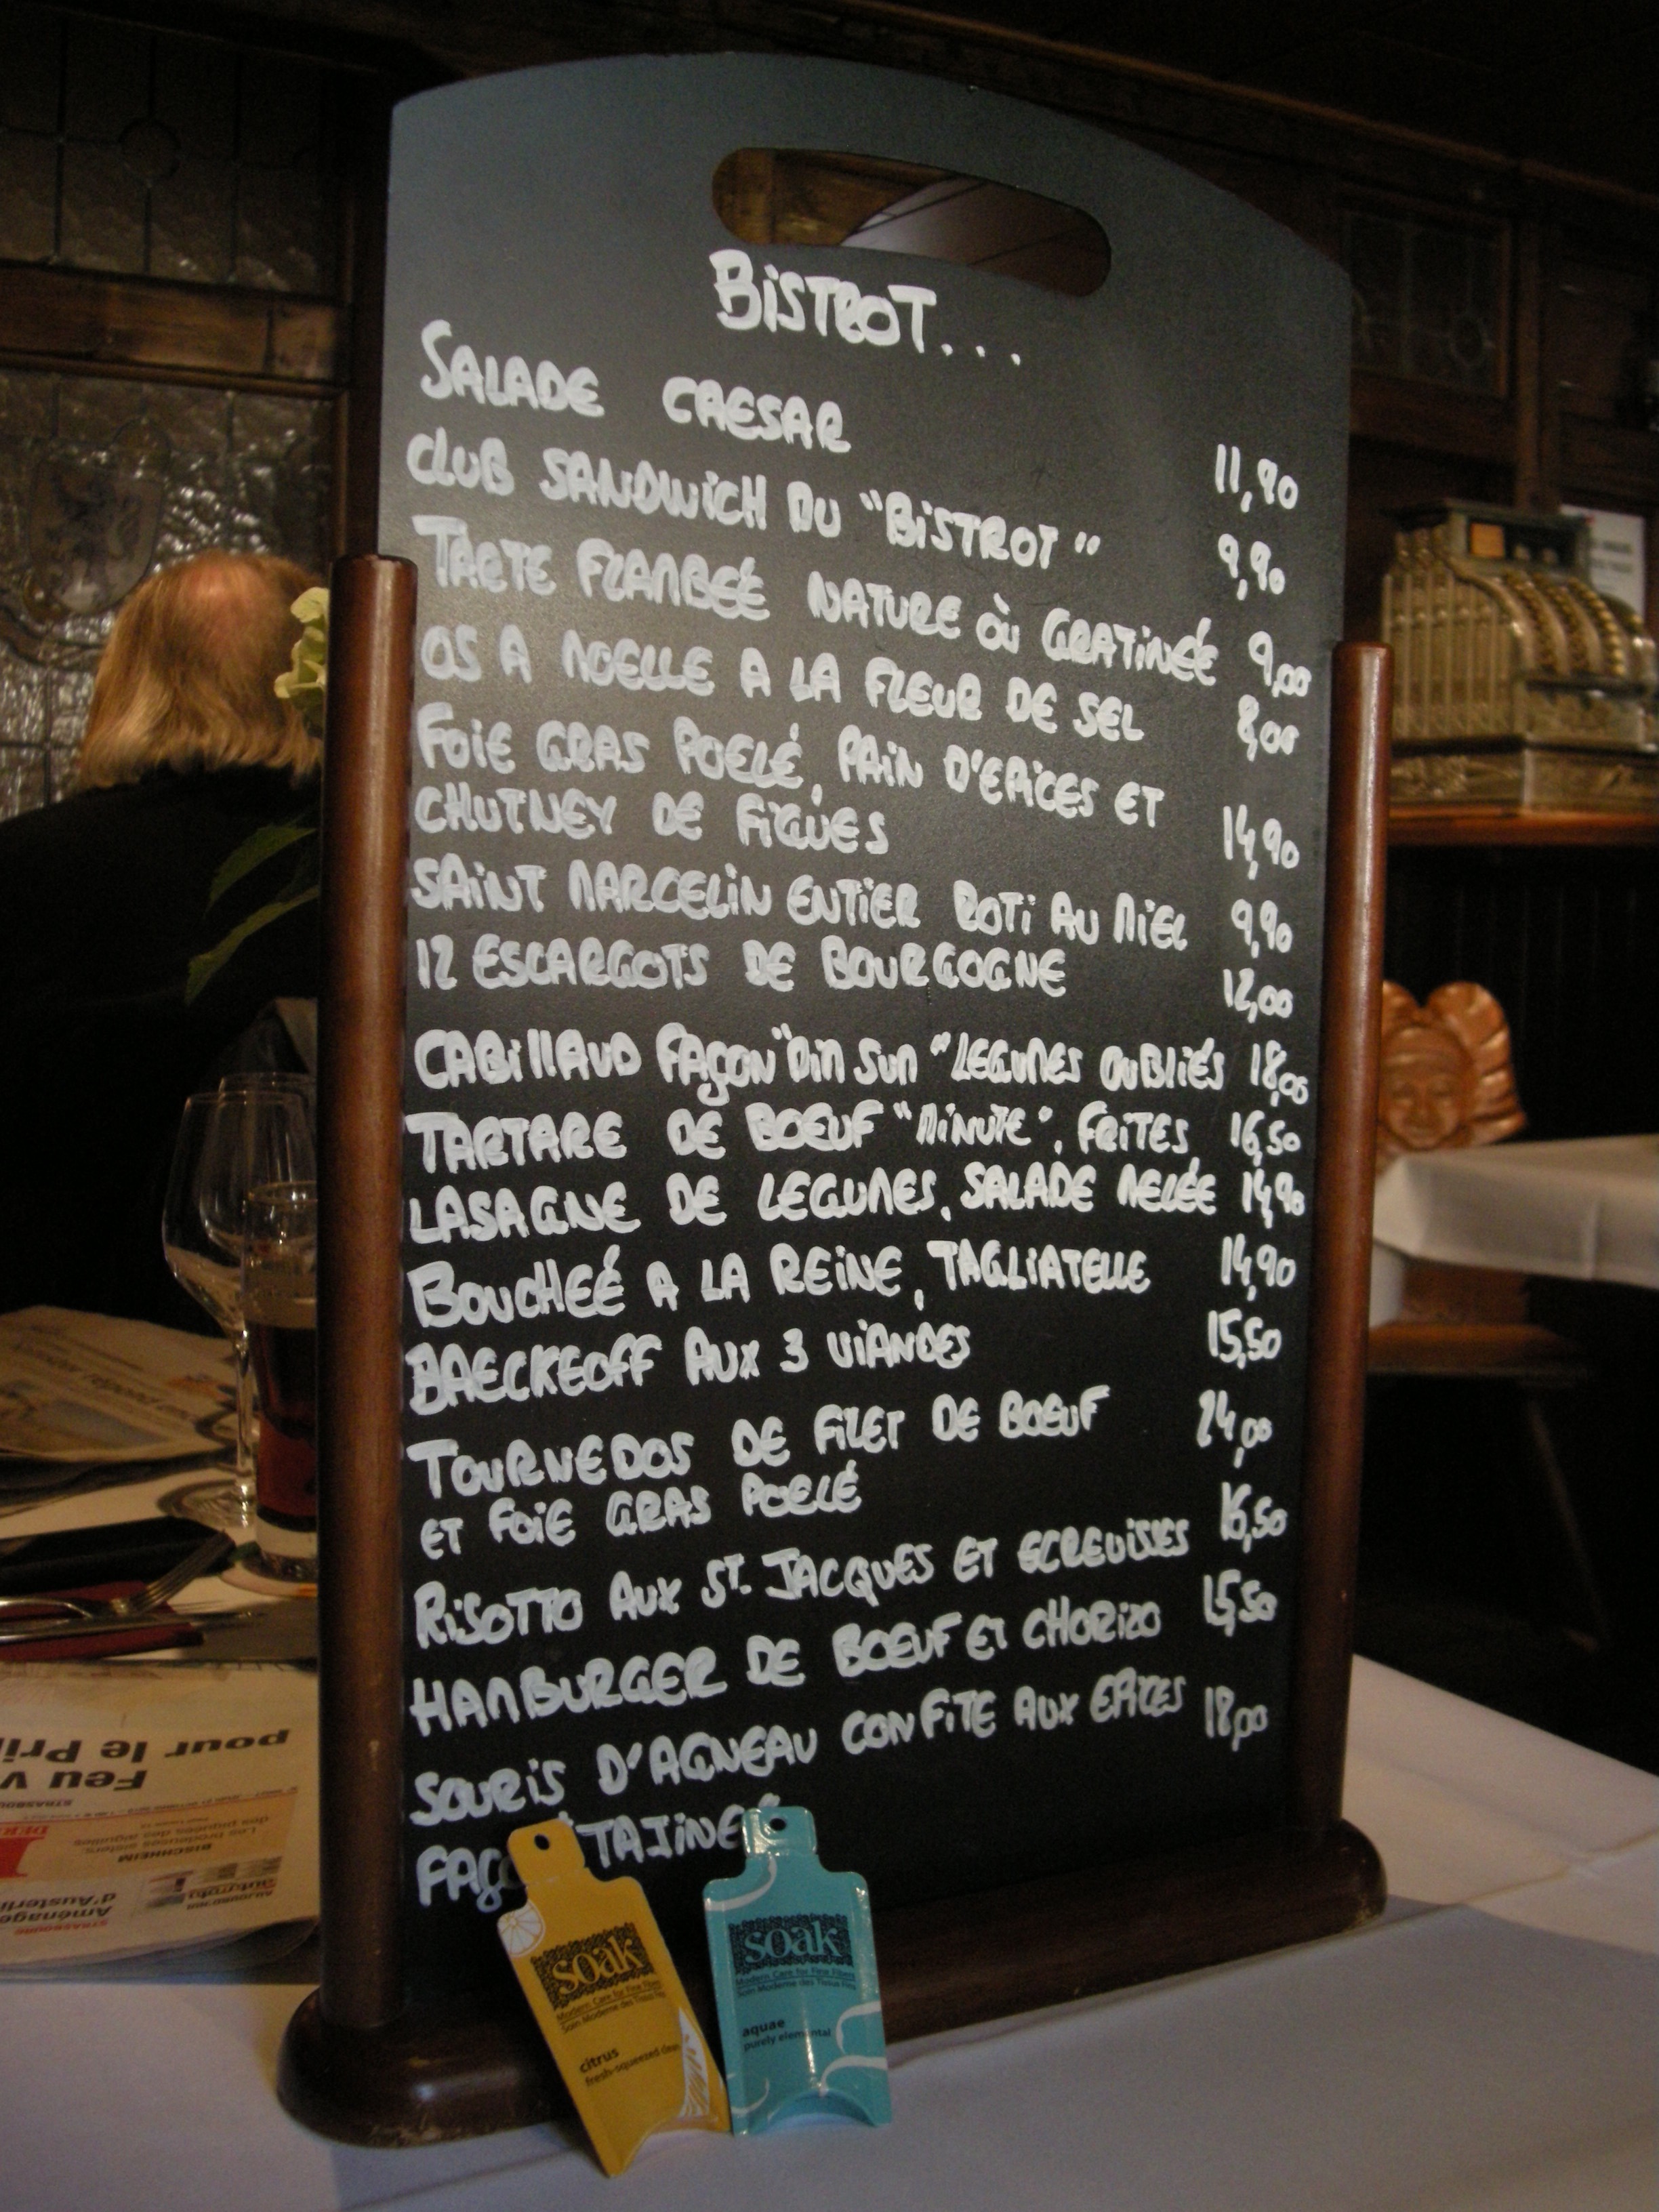 BISTROT...
SALADE CAESAR 11,90
CLUB SANDWICH DU "BISTROT" 9,90
TARTE FLAMBEÉ NATURE OÙ GRATINÉE 9,00
OS A MOELLE A LA FLEUR DE SEL 8,00
FOIE GRAS POELÉ, PAIN D'EPICES ET
CHUTNEY DE FIGUES 14,90
SAINT MARCELIN ENTIER ROTI AU MIEL 9,90
12 ESCARGOTS DE BOURGOGNE 12,00
CABILLAUD FAÇON "DIM SUM" LEGUMES OUBLIÉS 18,00
TARTARE DE BOEUF "MINUTE", FRITES 16,50
LASAGNE DE LEGUMES, SALADE MELÉE 14,90
BOUCHEÉ A LA REINE, TAGLIATELLE 14,90
BAECKEOFF AUX 3 VIANDES 15,50
TOURNEDOS DE FILET DE BOEUF 24,00
ET FOIE GRAS POELÉ
RISOTTO AUX ST. JACQUES ET ECREVISSES 16,50
HAMBURGER DE BOEUF ET CHORIZO 15,50
SOURIS D'AGNEAU CONFITE AUX EPICES 18,00
TAJINE
soak
Modern Care for Fine Fibers
Soin Moderne des Tissus Fins
citrus
fresh-squeezed clean
soak
Modern Care for Fine Fibers
Soin Moderne des Tissus Fins
aquae
purely elemental
Feu v
pour le Pri
BISCHHEIM
Les brodeuses sisters,
des piquées des aiguilles
STRASBOURG
Aménage
d'Austerli
AUJOURD'HUI